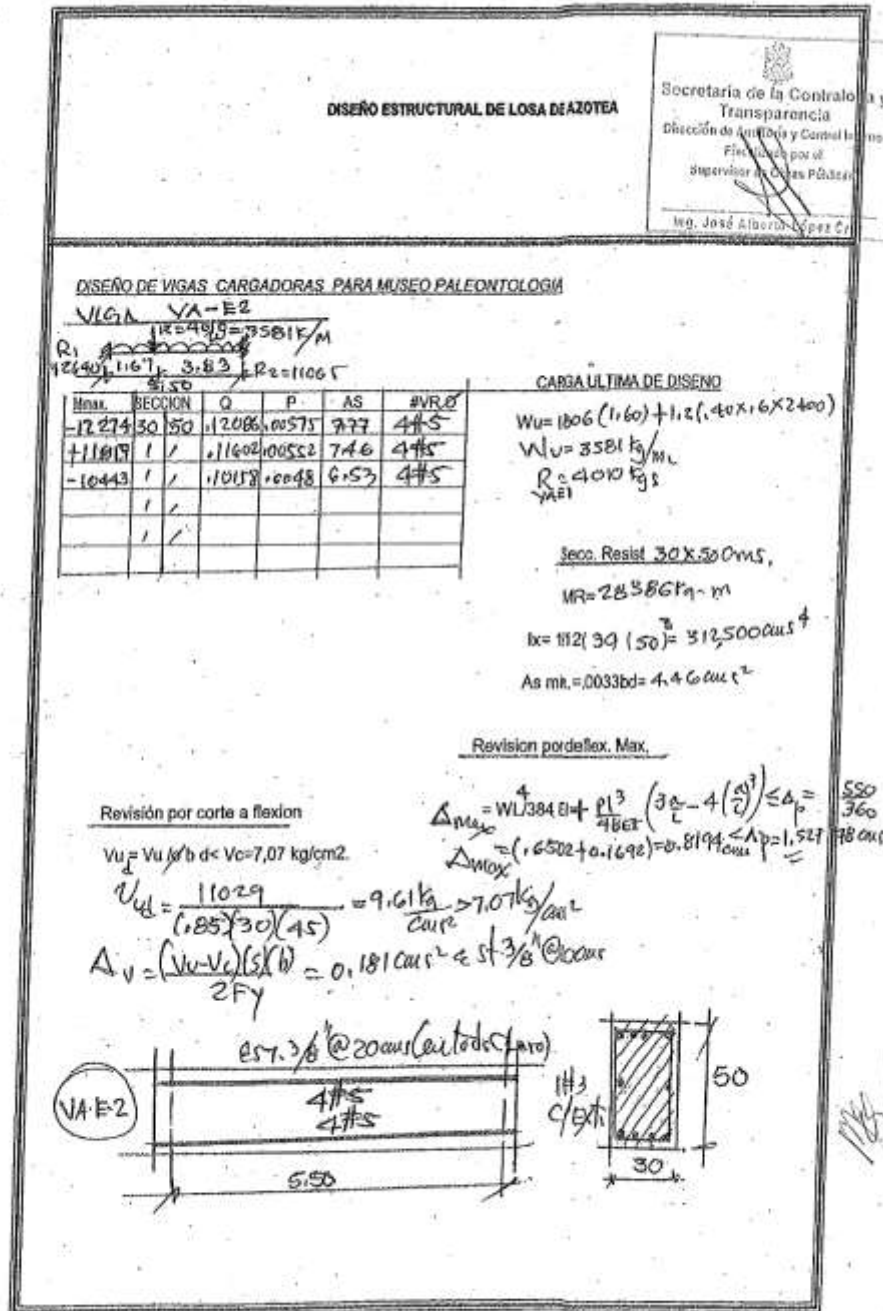 DISEÑO ESTRUCTURAL DE LOSA DE AZOTEA
Secretaría de la Contralo a y
Transparencia
Dirección de Auditoría y Control In rno
Fiscalizado por el
Supervisor de Obras Públicas
Ing. José Alberto López Cr
DISEÑO DE VIGAS CARGADORAS PARA MUSEO PALEONTOLOGIA
VIGA VA-E2
W=3581K/M
R1
1.67 3.83 R2=11065
5.50
Mmax. SECCION Q P AS #VR.Ø
-12274 30 50 .12086 .00575 7.77 4#5
+11819 .11602 .00552 7.46 4#5
-10443 .10158 .0048 6.53 4#5
CARGA ULTIMA DE DISEÑO
Wu=1806(1.60)+1.2(.40X.6X2400)
Wu=3581 kg/mL
R=4010 kgs
VAE1
Secc. Resist 30X50cms.
MR=28386kg-m
Ix= 1/12( 30 (50)³= 312,500 cms⁴
As min.=.0033bd= 4.46 cms²
Revision por deflex. Max.
Δmax = WL⁴/384 EI+ Pl³/48EI (3a/L - 4(a/L)³) ≤Δp= 550/360
Δmax =(.6502+0.1692)=0.8194cms <Δp=1.527 cms
Revisión por corte a flexion
Vud= Vu /ø b d< Vc=7,07 kg/cm2.
Vud= 11029/(.85)(30)(45) = 9.61 kg/cms² >7.07kg/cm²
Av=(Vu-Vc)(s)(b)/2Fy = 0.181cms² St 3/8"@ cms
est. 3/8"@20cms(en todo Claro)
VA-E-2
4#5
4#5
5.50
1#3
50
30